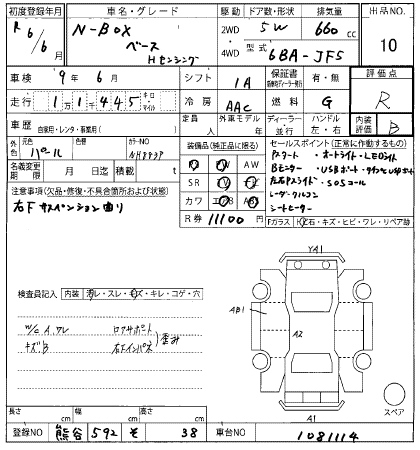 初度登録年月 車名・グレード 駆動 ドア数・形状 排気量 出品NO.
R6/6 N-BOX ベース Hセンシング 2WD 4WD 5W 660 cc 10
型式 6BA-JF5
車検 9年 6月 シフト IA 保証書 有・無 評価点
走行 11445 キロ マイル 冷房 AAC 燃料 G R
車歴 自家用・レンタ・事業用( ) 定員 人 外車モデル 年 ディーラー 並行 ハンドル 左・右 内装評価 B
外色 元色 パール 色替 カラーNO NH883P
名義変更期限 月 日迄 積載 t
装備品(純正品に限る)
PS PW AW
SR TV
カワ エアB ABS
R券 11100 円
セールスポイント(正常に作動するもの)
Pスタート ・オートライト・LEDライト
Bモニター ・USBポート
左右Pスライド ・SOSコール
レーダークルコン
シートヒーター
Fガラス 石・キズ・ヒビ・ワレ・リペア跡
注意事項(欠品・修復・不具合箇所および状態)
右F サスペンション曲り
検査員記入 内装 汚レ・スレ・キズ・キレ・コゲ・穴
W/C A.ワレ ロアサポート
キズ.B 右Fインパネ 歪み
YA1
AB1
A2
A1
スペア
長さ cm 幅 cm 高さ cm
登録NO 熊谷 592 そ 38 車台NO 1081114